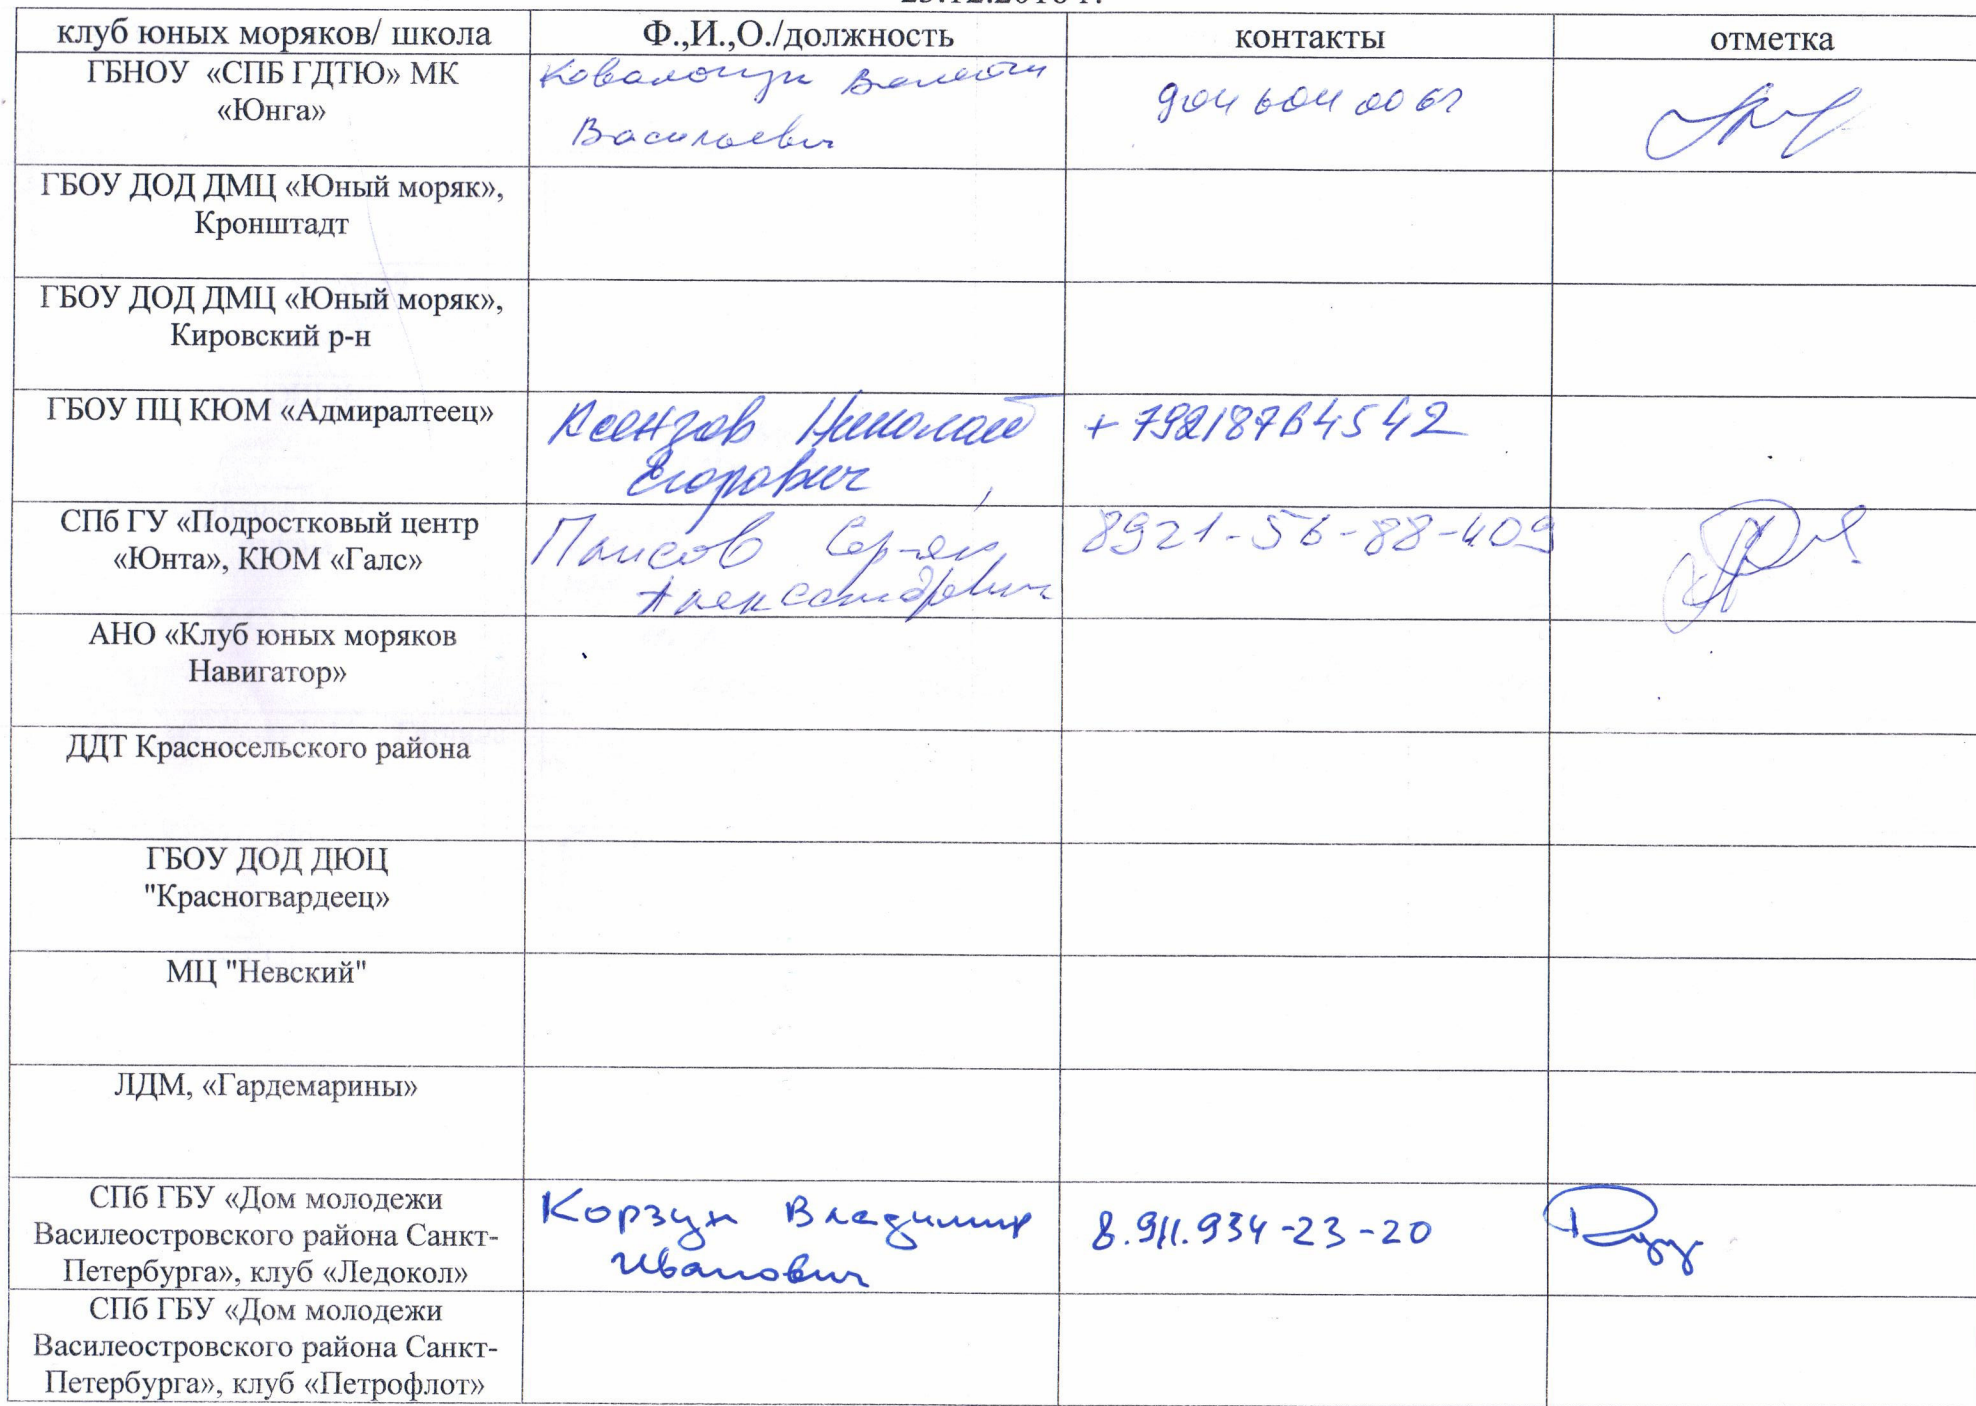 клуб юных моряков/ школа
Ф.,И.,О./должность
контакты
отметка
ГБНОУ «СПБ ГДТЮ» МК
«Юнга»
Васильевич
904 604 00 61
ГБОУ ДОД ДМЦ «Юный моряк»,
Кронштадт
ГБОУ ДОД ДМЦ «Юный моряк»,
Кировский р-н
ГБОУ ПЦ КЮМ «Адмиралтеец»
Ксензов Николай
Егорович
+79218764542
СПб ГУ «Подростковый центр
«Юнта», КЮМ «Галс»
Александрович
8921-56-88-409
АНО «Клуб юных моряков
Навигатор»
ДДТ Красносельского района
ГБОУ ДОД ДЮЦ
"Красногвардеец»
МЦ "Невский"
ЛДМ, «Гардемарины»
СПб ГБУ «Дом молодежи
Василеостровского района Санкт-
Петербурга», клуб «Ледокол»
Корзун Владимир
Иванович
8.911.934-23-20
СПб ГБУ «Дом молодежи
Василеостровского района Санкт-
Петербурга», клуб «Петрофлот»